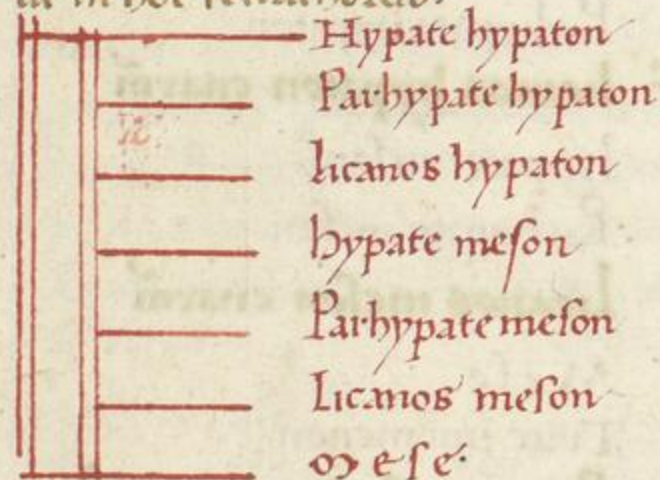 Hypate hypaton
Parhypate hypaton
licanos hypaton
hypate meson
Parhypate meson
Licanos meson
Mese.